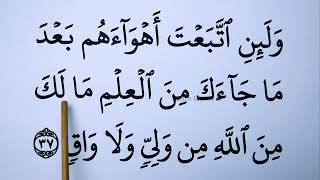 وَلَئِنِ ٱتَّبَعۡتَ أَهۡوَآءَهُم بَعۡدَ
مَا جَآءَكَ مِنَ ٱلۡعِلۡمِ مَا لَكَ
مِنَ ٱللَّهِ مِن وَلِيّٖ وَلَا وَاقٖ ٣٧